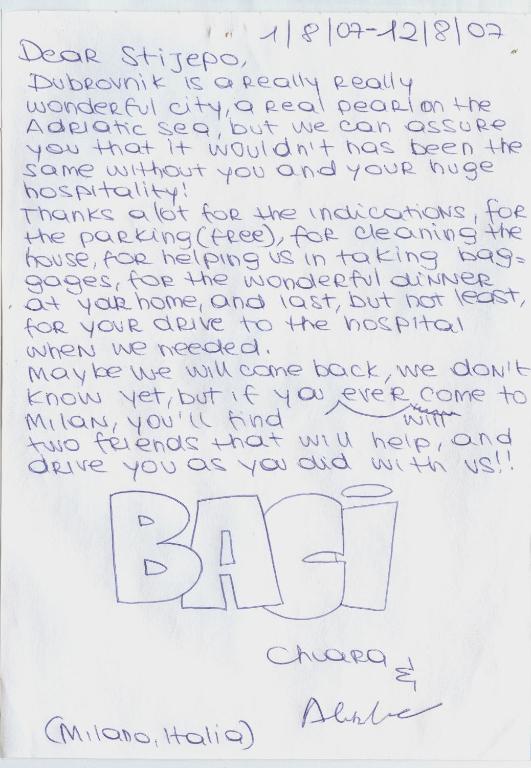 1/8/07-12/8/07
Dear Stijepo,
Dubrovnik is a really really
wonderful city, a real pearl on the
Adriatic sea, but we can assure
you that it wouldn't has been the
same without you and your huge
hospitality!
Thanks a lot for the indications, for
the parking (free), for cleaning the
house, for helping us in taking bag=
gages, for the wonderful dinner
at your home, and last, but not least,
for your drive to the hospital
when we needed.
Maybe we will come back, we don't
know yet, but if you ever come to
Milan, you'll find
two friends that will help, and
drive you as you did with us!!
BACI
Chiara
&
(Milano, Italia)